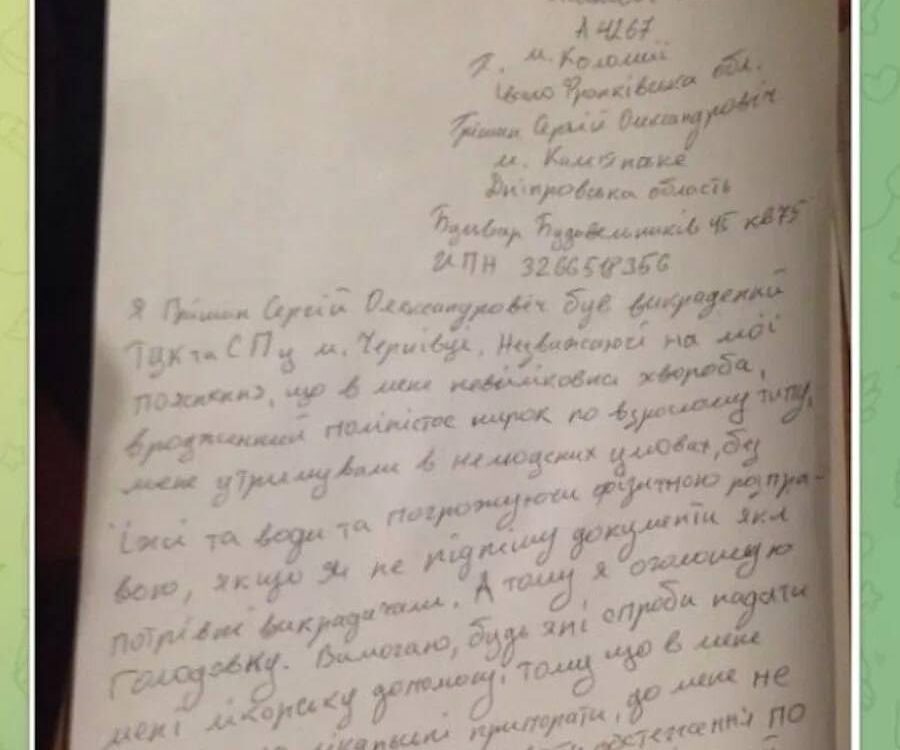 А 4267
м. Коломиї
Івано Франківська обл.
Грішин Сергій Олександровіч
м.
Дніпровська область
Бульвар Будівельників 45 кв 75
ИПН 3266518356
Я Грішин Сергій Олександровіч був викрадений
ТЦК та СП у м. Чернівці. Незважаючі на мої
що в мене невиліковна хвороба,
вродженний полікістоз нирок по взрослому типу,
мене утримували в нелюдських умовах, без
їжі та води та погрожуючи фізичною розпра-
вою, якщо я не підпишу документи які
потрібні викрадачам. А тому я оголошую
Голодовку. Вимогаю, будь які спроби надати
мені лікарську допомогу, тому що в мене
припорати, до мене не
по